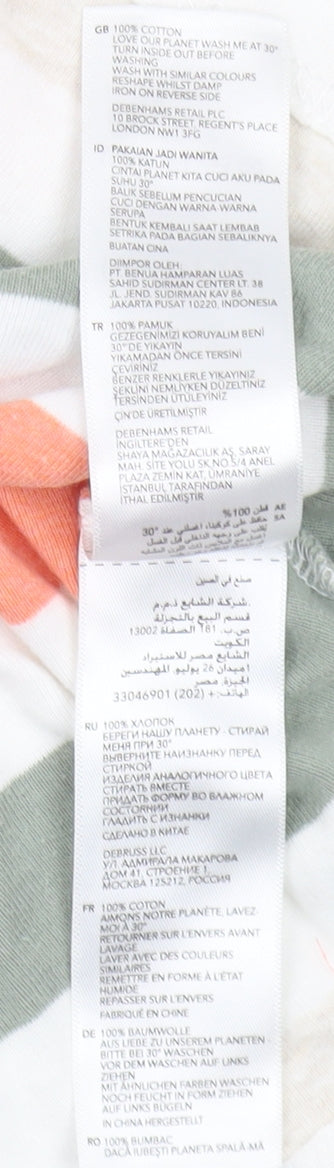 GB 100% COTTON
LOVE OUR PLANET WASH ME AT 30°
TURN INSIDE OUT BEFORE
WASHING
WASH WITH SIMILAR COLOURS
RESHAPE WHILST DAMP
IRON ON REVERSE SIDE
DEBENHAMS RETAIL PLC
10 BROCK STREET, REGENT'S PLACE
LONDON NW1 3FG
ID PAKAIAN JADI WANITA
100% KATUN
CINTAI PLANET KITA CUCI AKU PADA
SUHU 30°
BALIK SEBELUM PENCUCIAN
CUCI DENGAN WARNA-WARNA
SERUPA
BENTUK KEMBALI SAAT LEMBAB
SETRIKA PADA BAGIAN SEBALIKNYA
BUATAN CINA
DIIMPOR OLEH:
PT. BENUA HAMPARAN LUAS
SAHID SUDIRMAN CENTER LT. 38
JL. JEND. SUDIRMAN KAV 86
JAKARTA PUSAT 10220, INDONESIA
TR 100% PAMUK
GEZEGENİMİZİ KORUYALIM BENİ
30°DE YIKAYIN
YIKAMADAN ÖNCE TERSİNİ
ÇEVİRİNİZ
BENZER RENKLERLE YIKAYINIZ
ŞEKLİNİ NEMLİYKEN DÜZELTİNİZ
TERSİNDEN ÜTÜLEYİNİZ
ÇİN'DE ÜRETİLMİŞTİR
DEBENHAMS RETAIL
İNGİLTERE'DEN
SHAYA MAĞAZACILIK AŞ, SARAY
MAH. SİTE YOLU SK,NO 5/4 ANEL
PLAZA ZEMİN KAT, ÜMRANİYE
İSTANBUL TARAFINDAN
İTHAL EDİLMİŞTİR
AE قطن 100%
SA حافظ على كوكبنا، اغسلني عند 30°
صنع في الصين
شركة الشايع ذ.م.م.
قسم البيع بالتجزئة
ص.ب. 181 الصفاة 13002
الكويت
الشايع مصر للاستيراد
ميدان 26 يوليو، المهندسين
الجيزة، مصر
الهاتف: + (202) 33046901
RU 100% ХЛОПОК
БЕРЕГИ НАШУ ПЛАНЕТУ - СТИРАЙ
МЕНЯ ПРИ 30°
ВЫВЕРНИТЕ НАИЗНАНКУ ПЕРЕД
СТИРКОЙ
ИЗДЕЛИЯ АНАЛОГИЧНОГО ЦВЕТА
СТИРАТЬ ВМЕСТЕ
ПРИДАТЬ ФОРМУ ВО ВЛАЖНОМ
СОСТОЯНИИ
ГЛАДИТЬ С ИЗНАНКИ
СДЕЛАНО В КИТАЕ
DEBRUSS LLC
УЛ. АДМИРАЛА МАКАРОВА
ДОМ 41, СТРОЕНИЕ 1,
МОСКВА 125212, РОССИЯ
FR 100% COTON
AIMONS NOTRE PLANÈTE, LAVEZ-
MOI À 30°
RETOURNER SUR L'ENVERS AVANT
LAVAGE
LAVER AVEC DES COULEURS
SIMILAIRES
REMETTRE EN FORME À L'ÉTAT
HUMIDE
REPASSER SUR L'ENVERS
FABRIQUÉ EN CHINE
DE 100% BAUMWOLLE
AUS LIEBE ZU UNSEREM PLANETEN -
BITTE BEI 30° WASCHEN
VOR DEM WASCHEN AUF LINKS
ZIEHEN
MIT ÄHNLICHEN FARBEN WASCHEN
NOCH FEUCHT IN FORM ZIEHEN
AUF LINKS BÜGELN
IN CHINA HERGESTELLT
RO 100% BUMBAC
DACĂ IUBEȘTI PLANETA SPALĂ-MĂ